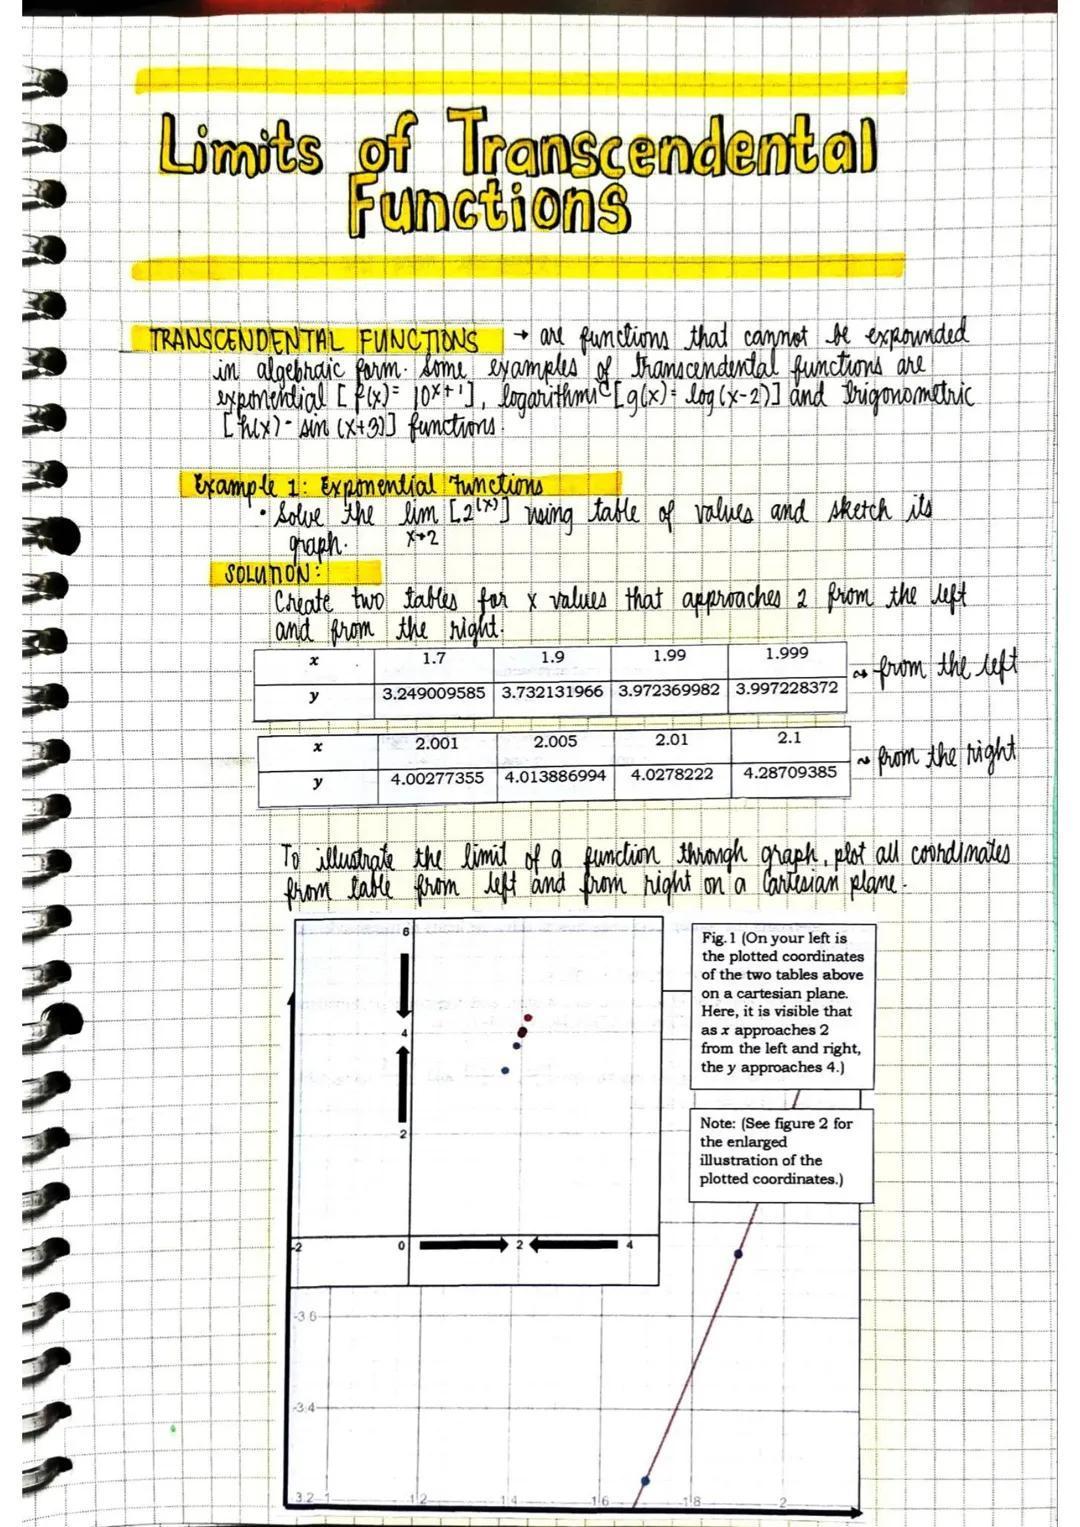 Limits of Transcendental
Functions
TRANSCENDENTAL FUNCTIONS → are functions that cannot be expounded
in algebraic form. Some examples of transcendental functions are
exponential [f(x)= 10^x+1], logarithmic [g(x)= log(x-2)] and trigonometric
[h(x)- sin (x+3)] functions.
Example 1: Exponential Functions
• Solve the lim [2^(x)] using table of values and sketch its
x→2
graph.
SOLUTION:
Create two tables for x values that approaches 2 from the left
and from the right.
x 1.7 1.9 1.99 1.999
y 3.249009585 3.732131966 3.972369982 3.997228372
~ from the left
x 2.001 2.005 2.01 2.1
y 4.00277355 4.013886994 4.0278222 4.28709385
~ from the right
To illustrate the limit of a function through graph, plot all coordinates
from table from left and from right on a Cartesian plane.
6
4
2
-2 0 2 4
Fig. 1 (On your left is
the plotted coordinates
of the two tables above
on a cartesian plane.
Here, it is visible that
as x approaches 2
from the left and right,
the y approaches 4.)
Note: (See figure 2 for
the enlarged
illustration of the
plotted coordinates.)
3.6
3.4
3.2 1 1.2 1.4 1.6 1.8 2